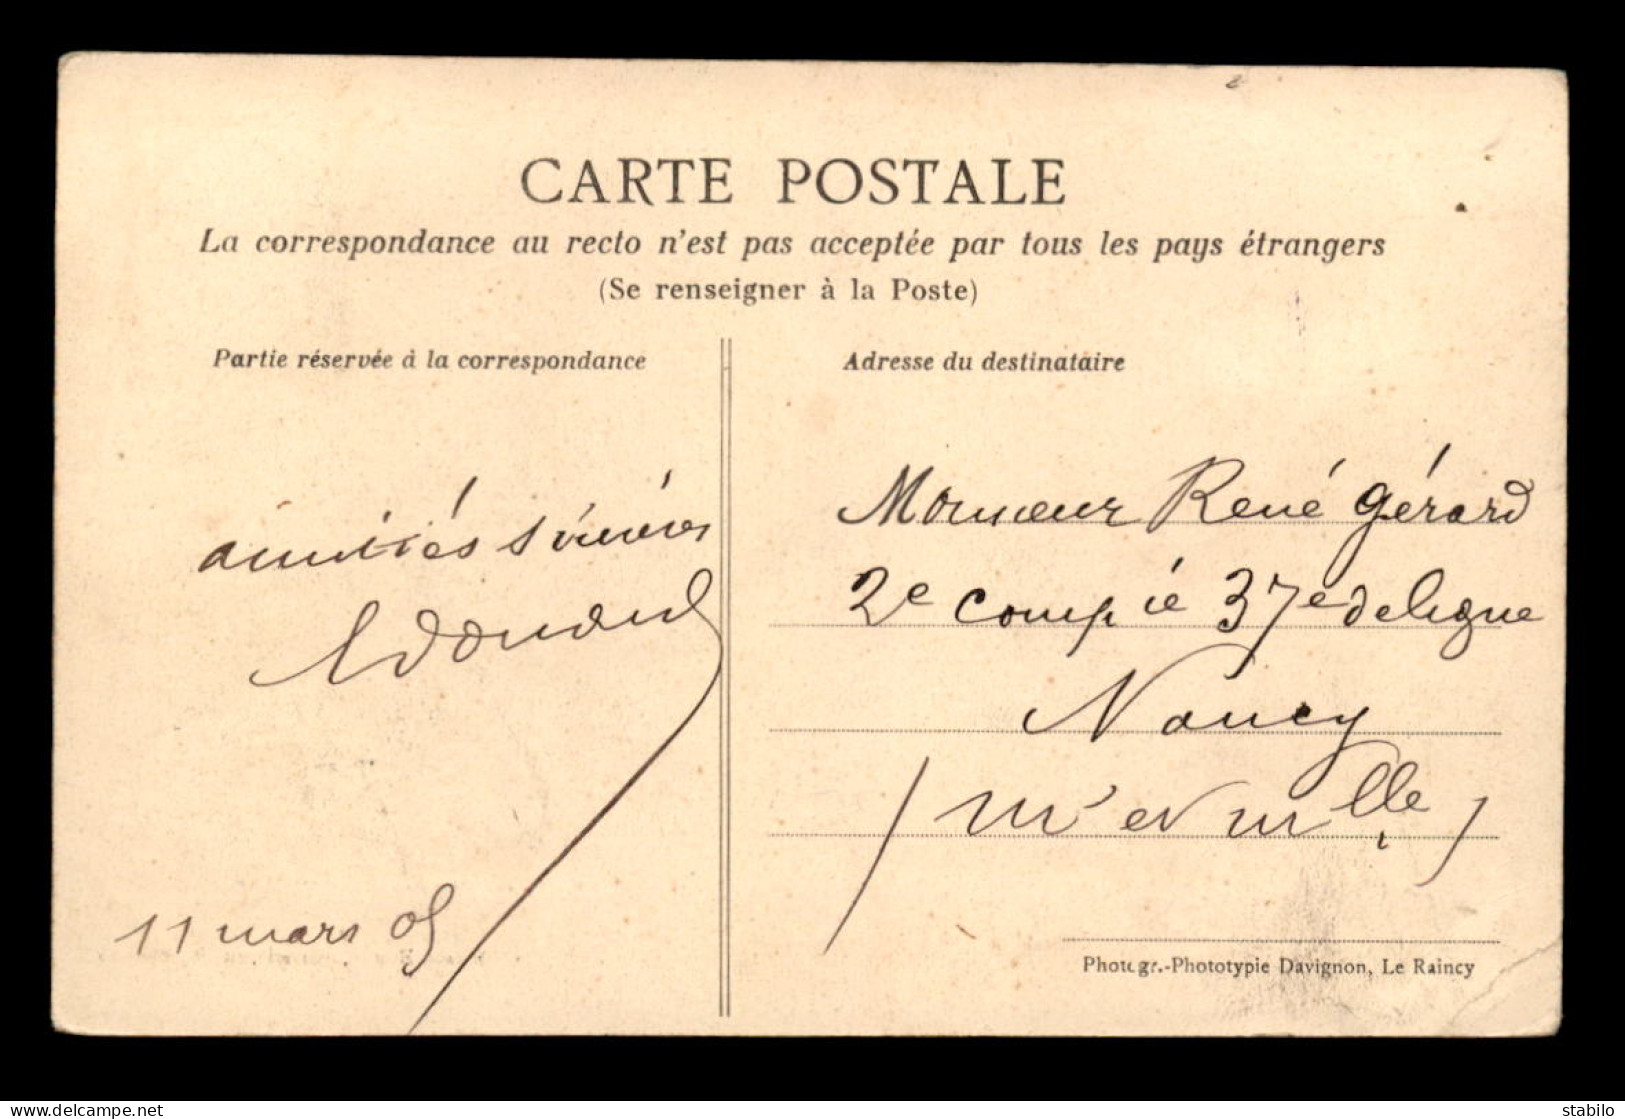 CARTE POSTALE
La correspondance au recto n'est pas acceptée par tous les pays étrangers
(Se renseigner à la Poste)
Partie réservée à la correspondance
amitiés sincères
Edouard
11 mars 05
Adresse du destinataire
Monsieur René Gérard
2e compie 37e de ligne
Nancy
(Mthe et Mlle)
Photogr.-Phototypie Davignon, Le Raincy
delcampe.net
stabilo